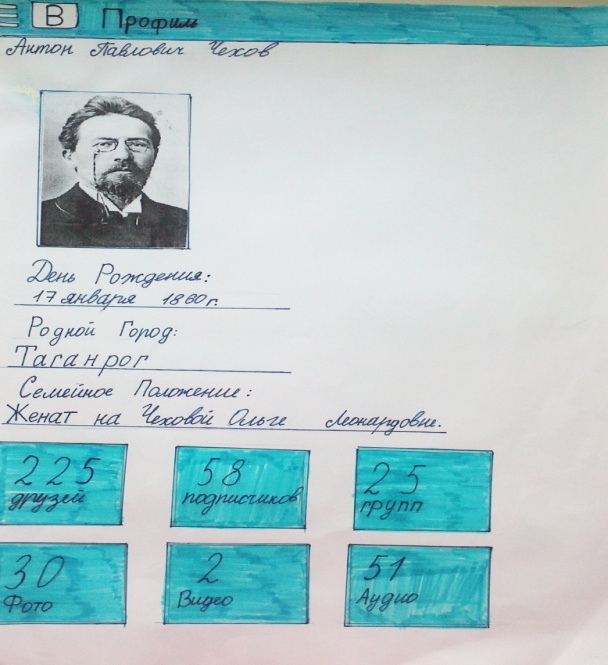 В Профиль
Антон Павлович Чехов
День Рождения:
17 января 1860 г.
Родной Город:
Таганрог
Семейное Положение:
Женат на Чеховой Ольге Леонардовне.
225 58 25
друзей подписчиков групп
30 2 51
Фото Видео Аудио